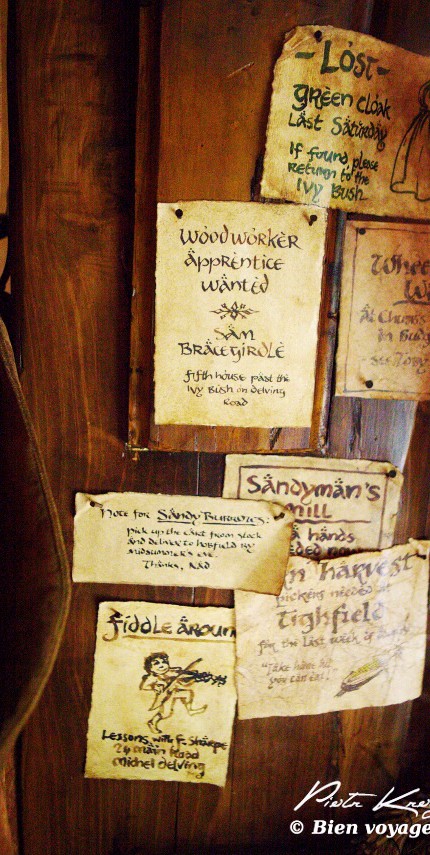 - Lost -
Green cloak
Last Saturday
If found, please
return to the
Ivy Bush
Woodworker
Apprentice
Wanted
Sam
Bracegirdle
fifth house past the
Ivy Bush on delving
Road
At Chubb's
in
see Toby
Sandyman's
Mill
hands
Note for Sandy Burrows:
pick up the cart from stock
and deliver to hobfield by
midsummer's eve.
Thanks, Dad
Harvest
pickers needed at
Tighfield
for the last week of
"Take home all
you can eat."
Fiddle Aroun
Lessons with F. Sharpe
24 main Road
Michel delving
Piotr
© Bien voyage